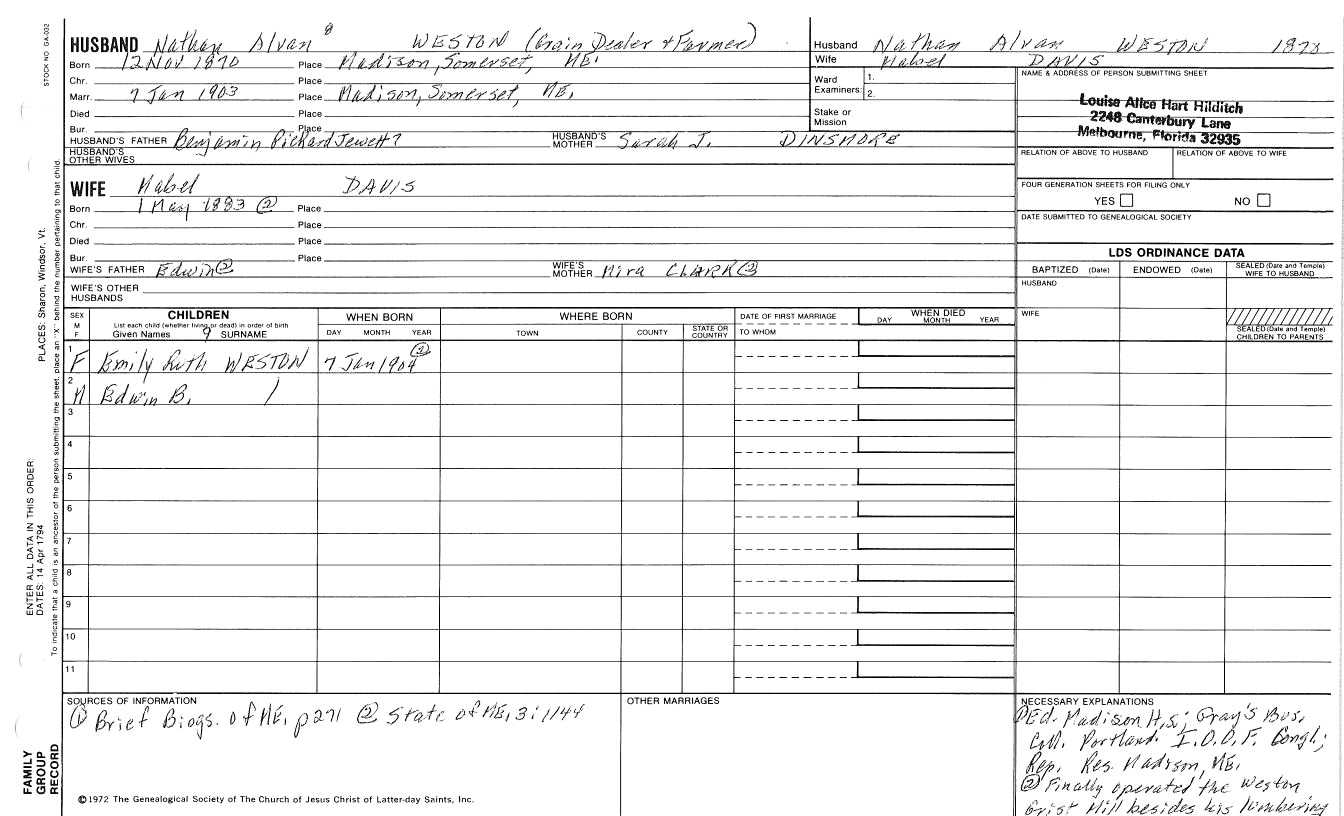 STOCK NO GA-032
HUSBAND Nathan Alvan 8 WESTON (Grain Dealer + Farmer)
Born 12 Nov 1870 Place Madison, Somerset, ME.
Chr. Place
Marr. 7 Jan 1903 Place Madison, Somerset, ME.
Died Place
Bur. Place
HUSBAND'S FATHER Benjamin Rickard Jewett 7 HUSBAND'S MOTHER Sarah J. DINSMORE
HUSBAND'S OTHER WIVES
WIFE Mabel DAVIS
Born 1 May 1883 ② Place
Chr. Place
Died Place
Bur. Place
WIFE'S FATHER Edwin ② WIFE'S MOTHER Mira CLARK ②
WIFE'S OTHER HUSBANDS
Husband Nathan Alvan WESTON 1870
Wife Mabel DAVIS
Ward Examiners: 1.
2.
Stake or Mission
NAME & ADDRESS OF PERSON SUBMITTING SHEET
Louise Alice Hart Hilditch
2246 Canterbury Lane
Melbourne, Florida 32935
RELATION OF ABOVE TO HUSBAND RELATION OF ABOVE TO WIFE
FOUR GENERATION SHEETS FOR FILING ONLY
YES NO
DATE SUBMITTED TO GENEALOGICAL SOCIETY
LDS ORDINANCE DATA
BAPTIZED (Date) ENDOWED (Date) SEALED (Date and Temple) WIFE TO HUSBAND
HUSBAND
WIFE
SEALED (Date and Temple) CHILDREN TO PARENTS
SEX M F
CHILDREN
List each child (whether living or dead) in order of birth
Given Names 9 SURNAME
WHEN BORN
DAY MONTH YEAR
WHERE BORN
TOWN COUNTY STATE OR COUNTRY
DATE OF FIRST MARRIAGE
TO WHOM
WHEN DIED
DAY MONTH YEAR
1 F Emily Ruth WESTON 7 Jan 1904 ②
2 M Edwin B. /
3
4
5
6
7
8
9
10
11
SOURCES OF INFORMATION
① Brief Biogs. of ME. p271 ② State of ME, 3:1144
OTHER MARRIAGES
NECESSARY EXPLANATIONS
① Ed. Madison H.S; Gray's Bus.
Coll. Portland. I.O.O.F. Congl.;
Rep. Res. Madison, ME.
② Finally operated the Weston
Grist Mill besides his lumbering
©1972 The Genealogical Society of The Church of Jesus Christ of Latter-day Saints, Inc.
FAMILY GROUP RECORD
ENTER ALL DATA IN THIS ORDER:
DATES: 14 Apr 1794 PLACES: Sharon, Windsor, Vt.
To indicate that a child is an ancestor of the person submitting the sheet, place an "X" behind the number pertaining to that child.